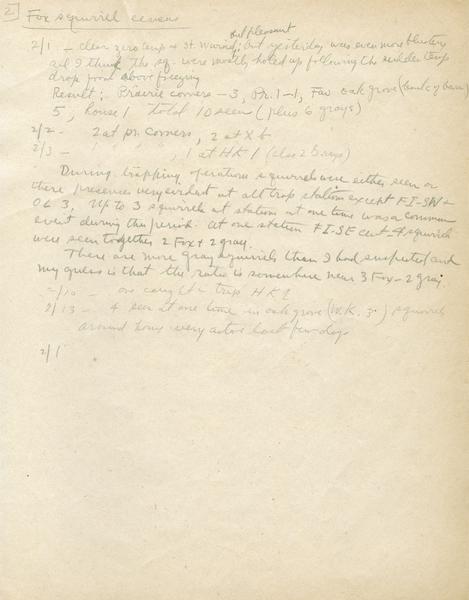 2
Fox squirrel census
but pleasant
2/1 - clear zero temp & st. wind; but yesterday was even more blustery
and I think the sq. were mostly holed up following the sudden temp
drop from above freezing
Result: Prairie corners - 3, Pr. 1 - 1, Far oak grove (back of barn)
5, house 1 total 10 seen (plus 6 grays)
2/2 - 2 at pr. corners, 2 at X b
2/3 - " " " " , 1 at HK 1 (also 2 grays)
During trapping operations squirrels were either seen or
there presence very evident at all trap stations except FI-SW &
OG 3. Up to 3 squirrels at station at one time was a common
event during this period. At one station FI-SE cent - 4 squirrels
were seen together 2 Fox + 2 gray.
There are more gray squirrels than I had suspected and
my guess is that the ratio is somewhere near 3 Fox - 2 gray.
2/10 - one caught in trap HK 1
2/13 - 4 seen at one time in oak grove (W.K. 3) squirrels
around here very active last few days
2/1